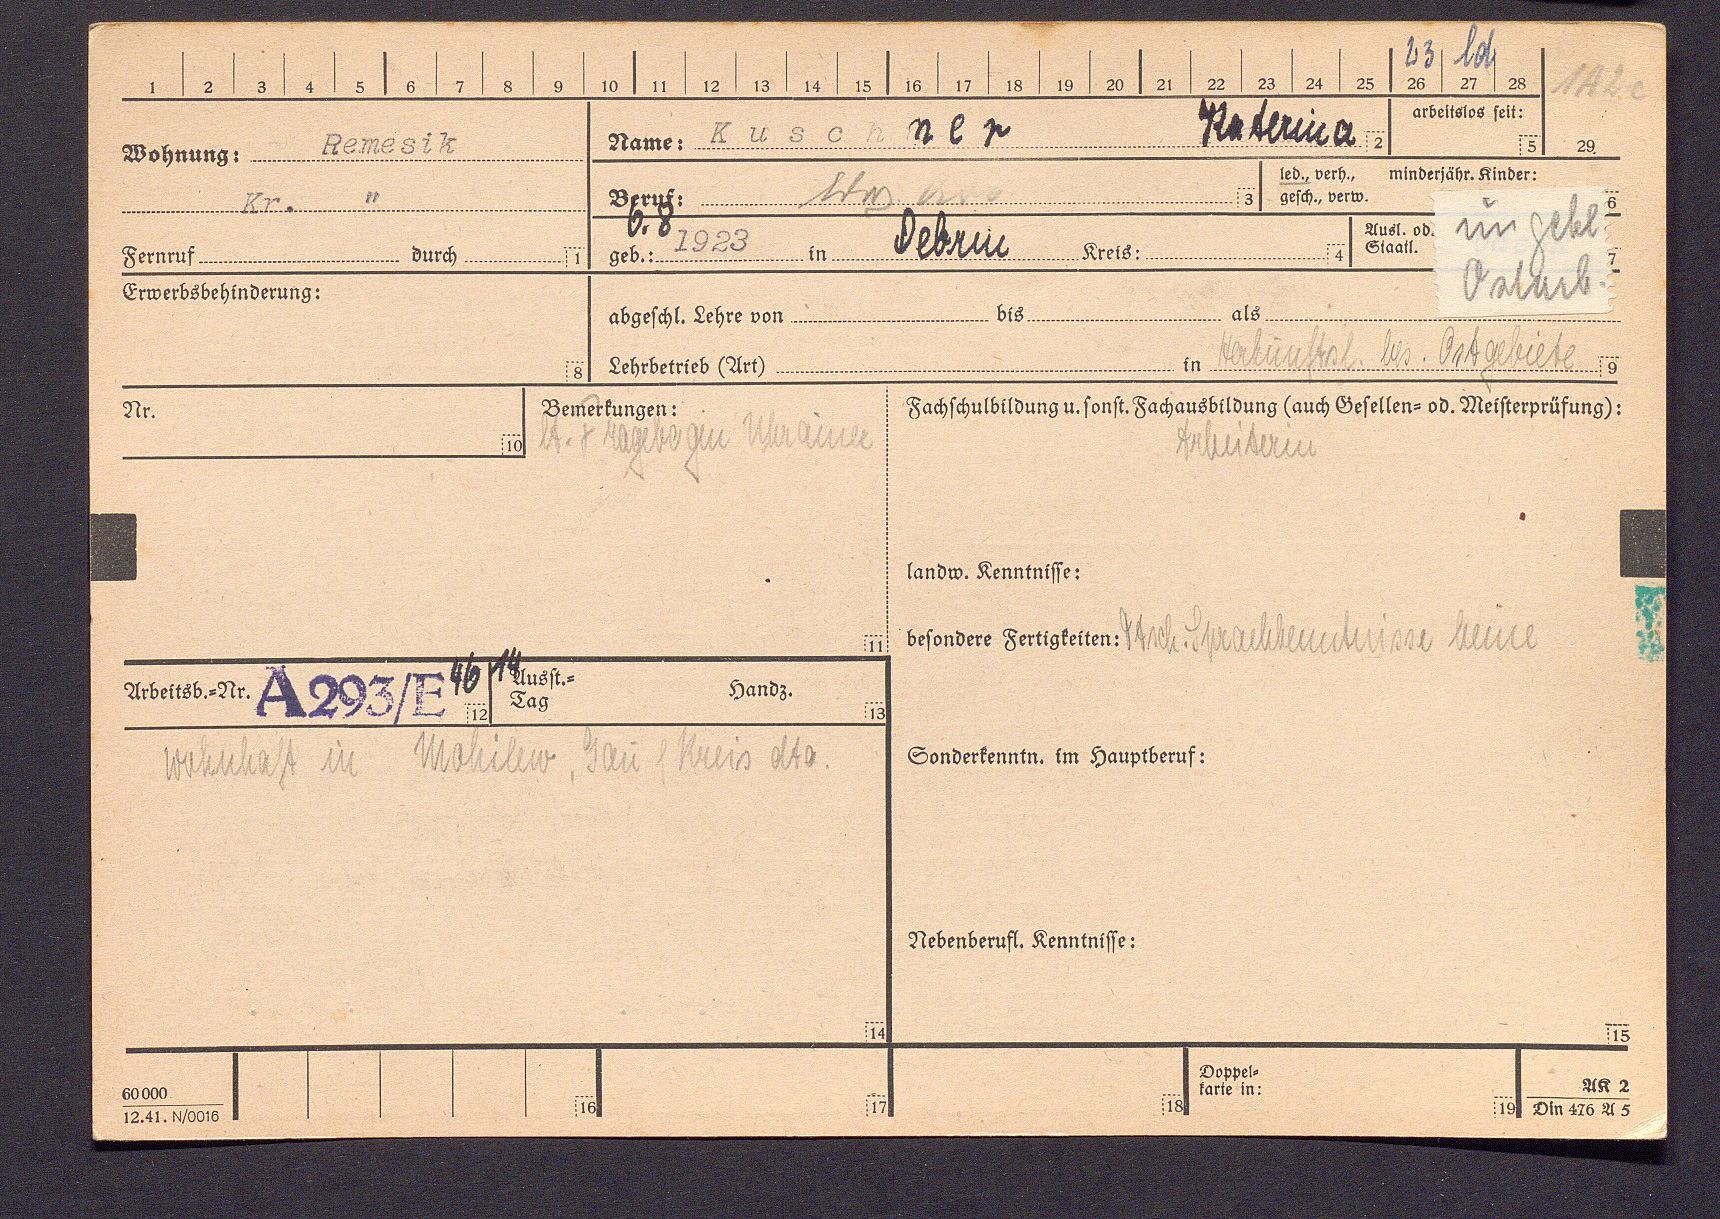 23 ld
1 2 3 4 5 6 7 8 9 10 11 12 13 14 15 16 17 18 19 20 21 22 23 24 25 26 27 28
Wohnung: Remesik
Kr. "
Fernruf durch 1
Name: Kuschner Katerina 2
arbeitslos seit: 5
29.
Beruf: 3
led., verh., minderjähr. Kinder:
gesch., verw. 6
geb.: 6.8 1923 in Debrin Kreis: 4
Ausl. od.
Staatl. 7
ungekl.
Ostarb.
Erwerbsbehinderung: 8
abgeschl. Lehre von bis als
Lehrbetrieb (Art) in Herkunftsl. bes. Ostgebiete 9
Nr. 10
Bemerkungen:
lt. Fragebogen Ukrainer
11
Fachschulbildung u. sonst. Fachausbildung (auch Gesellen= od. Meisterprüfung):
Arbeiterin
landw. Kenntnisse:
besondere Fertigkeiten: Dtsch. Sprachkenntnisse keine
Arbeitsb.=Nr. A293/E 46 12
14
Ausst.=
Tag Handz. 13
wohnhaft in Mohilew, Gau / Kreis dto.
Sonderkenntn. im Hauptberuf:
Nebenberufl. Kenntnisse:
14 15
60000
12.41. N/0016
16 17 18
Doppel=
karte in: 19
AK 2
Din 476 A 5